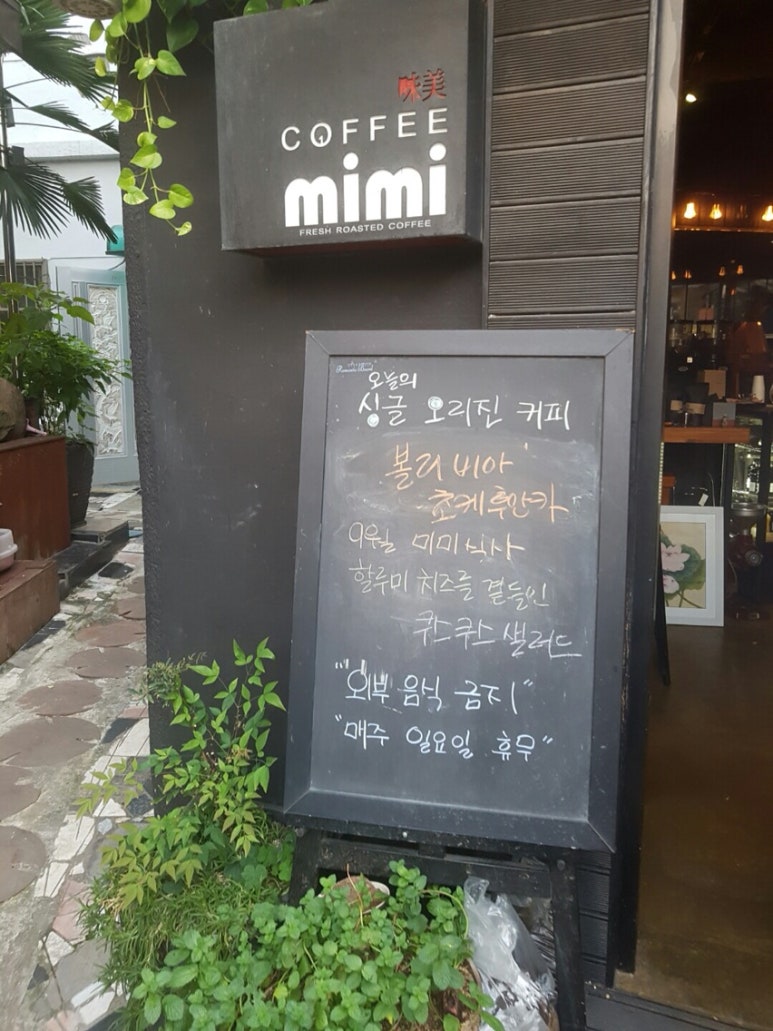 味美
COFFEE
mimi
FRESH ROASTED COFFEE
오늘의
싱글 오리진 커피
볼리비아
초케후안카
9월 미미식사
할루미 치즈를 곁들인
쿠스쿠스 샐러드
"외부 음식 금지"
"매주 일요일 휴무"